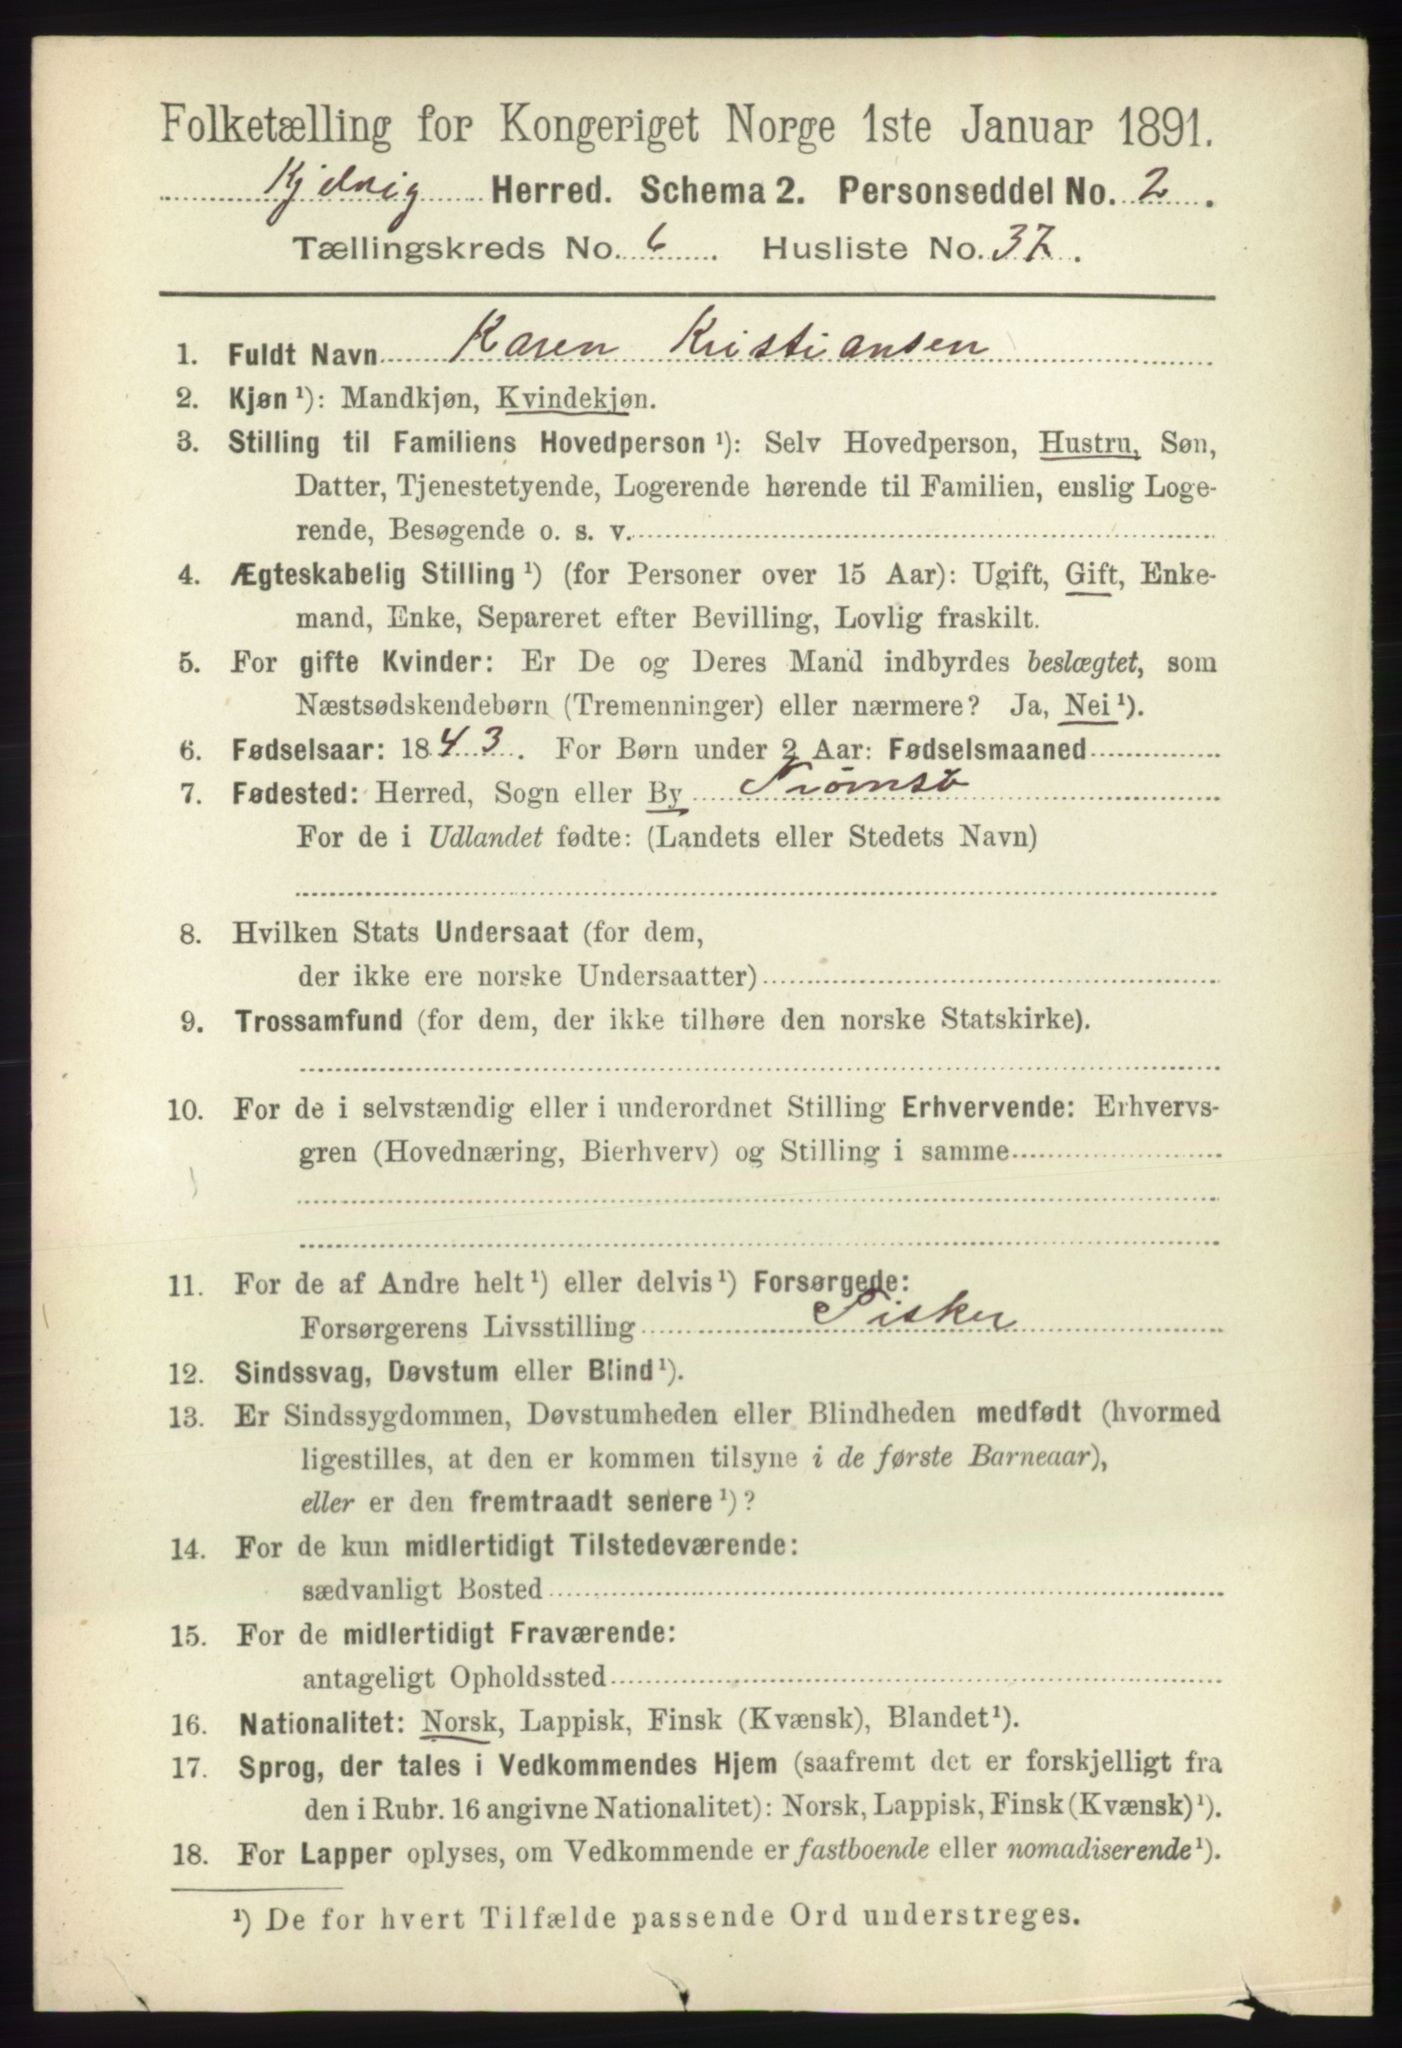 Folketælling for Kongeriget Norge 1ste Januar 1891.
Kjelvig Herred. Schema 2. Personseddel No. 2.
Tællingskreds No. 6. Husliste No. 37.
1. Fuldt Navn Karen Kristiansen
2. Kjøn ¹): Mandkjøn, Kvindekjøn.
3. Stilling til Familiens Hovedperson ¹): Selv Hovedperson, Hustru, Søn,
Datter, Tjenestetyende, Logerende hørende til Familien, enslig Loge-
rende, Besøgende o. s. v.
4. Ægteskabelig Stilling ¹) (for Personer over 15 Aar): Ugift, Gift, Enke-
mand, Enke, Separeret efter Bevilling, Lovlig fraskilt.
5. For gifte Kvinder: Er De og Deres Mand indbyrdes beslægtet, som
Næstsødskendebørn (Tremenninger) eller nærmere? Ja, Nei ¹).
6. Fødselsaar: 1843. For Børn under 2 Aar: Fødselsmaaned
7. Fødested: Herred, Sogn eller By Tromsö
For de i Udlandet fødte: (Landets eller Stedets Navn)
8. Hvilken Stats Undersaat (for dem,
der ikke ere norske Undersaatter)
9. Trossamfund (for dem, der ikke tilhøre den norske Statskirke).
10. For de i selvstændig eller i underordnet Stilling Erhvervende: Erhvervs-
gren (Hovednæring, Bierhverv) og Stilling i samme
11. For de af Andre helt ¹) eller delvis ¹) Forsørgede:
Forsørgerens Livsstilling Fisker
12. Sindssvag, Døvstum eller Blind ¹).
13. Er Sindssygdommen, Døvstumheden eller Blindheden medfødt (hvormed
ligestilles, at den er kommen tilsyne i de første Barneaar),
eller er den fremtraadt senere ¹)?
14. For de kun midlertidigt Tilstedeværende:
sædvanligt Bosted
15. For de midlertidigt Fraværende:
antageligt Opholdssted
16. Nationalitet: Norsk, Lappisk, Finsk (Kvænsk), Blandet ¹).
17. Sprog, der tales i Vedkommendes Hjem (saafremt det er forskjelligt fra
den i Rubr. 16 angivne Nationalitet): Norsk, Lappisk, Finsk (Kvænsk) ¹).
18. For Lapper oplyses, om Vedkommende er fastboende eller nomadiserende ¹).
¹) De for hvert Tilfælde passende Ord understreges.